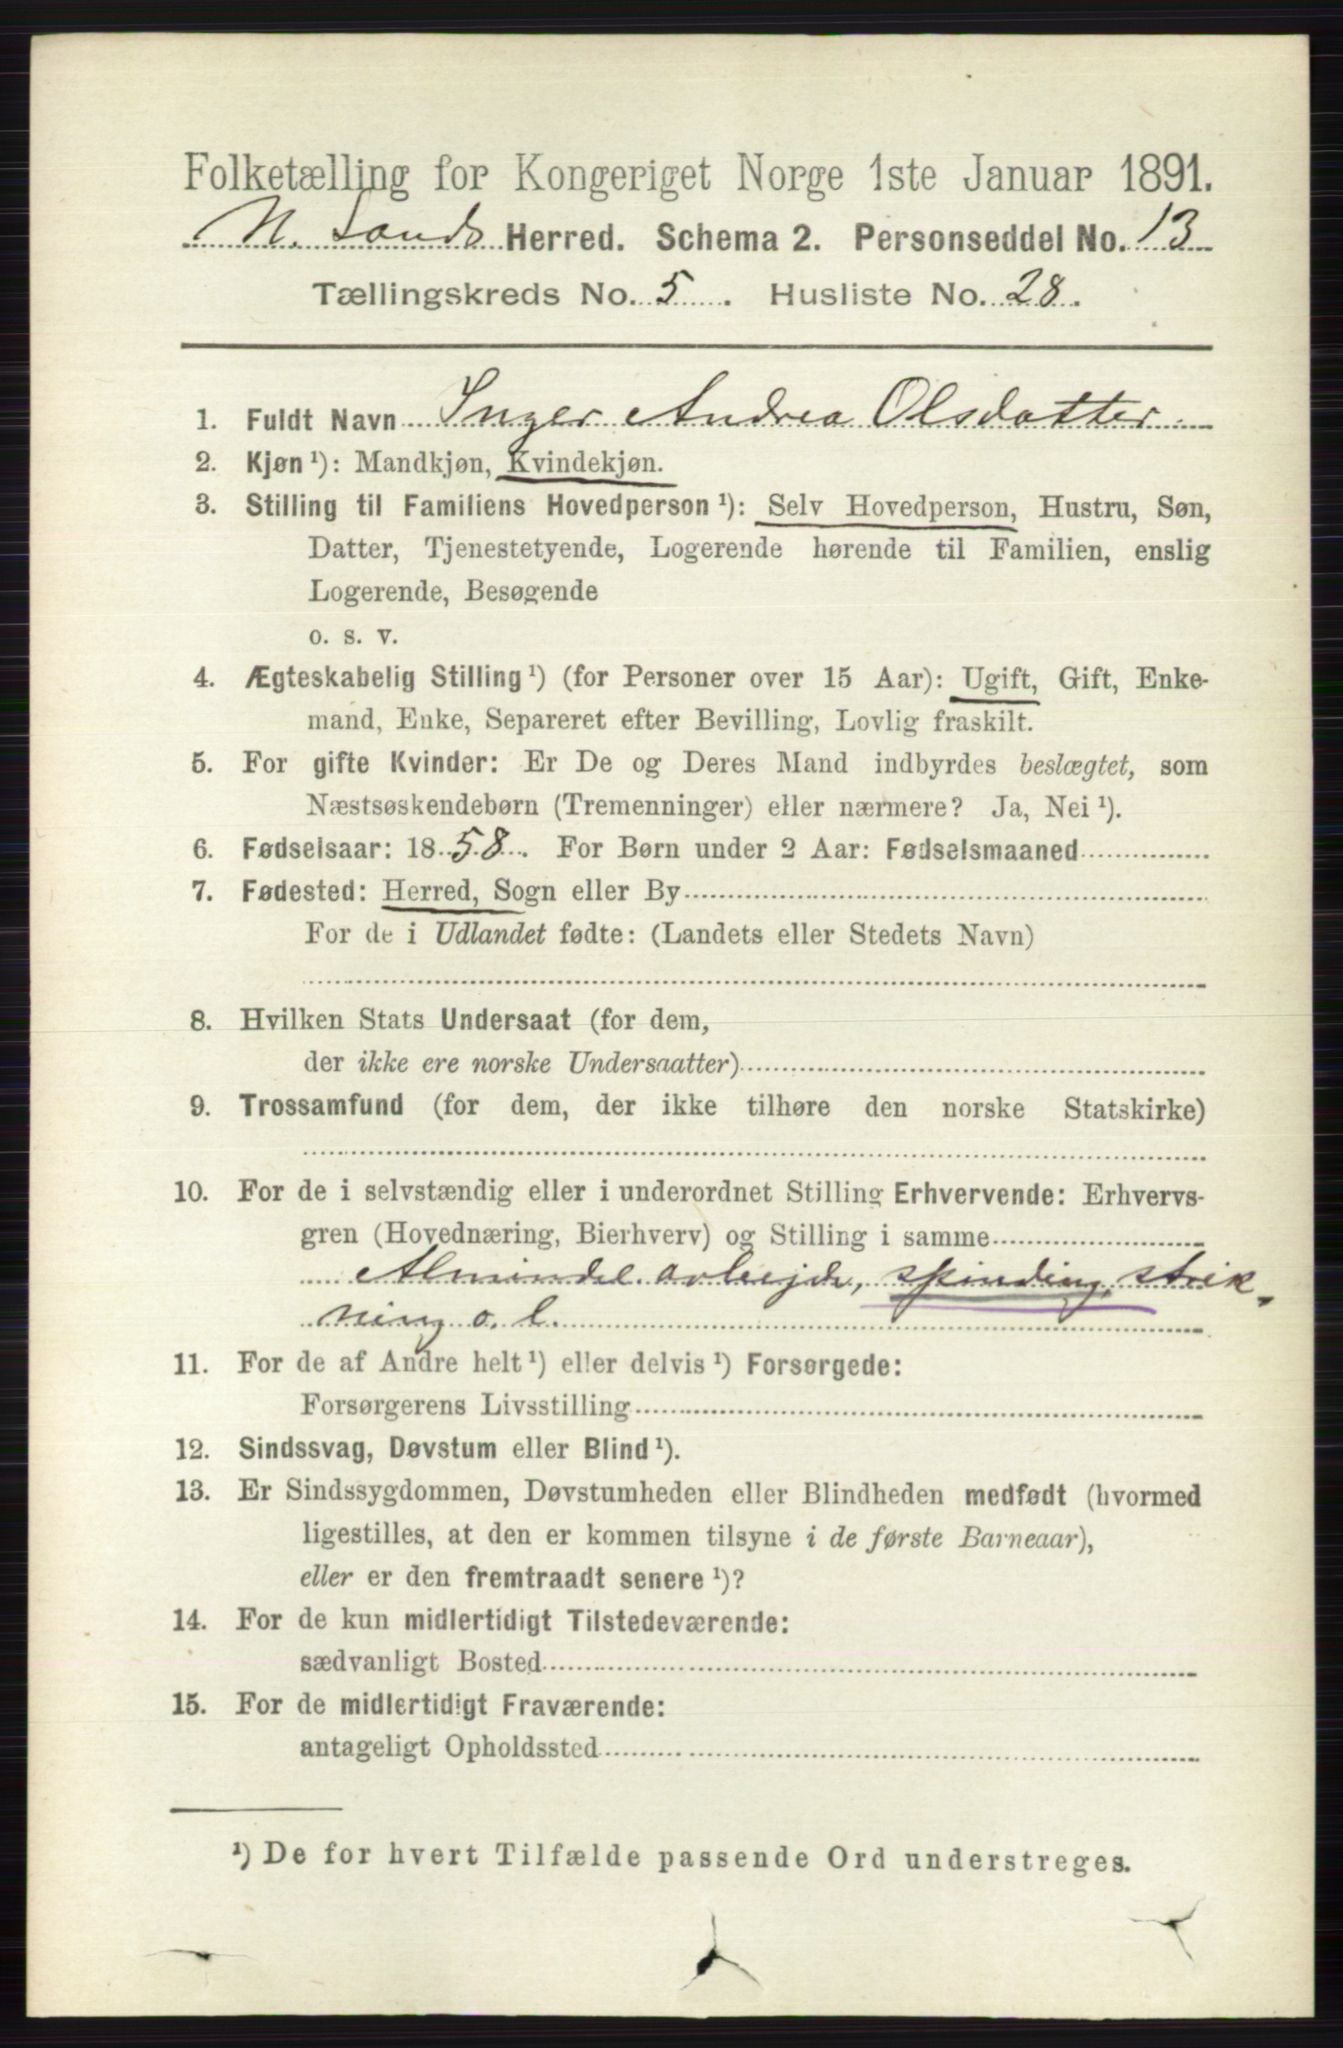 Folketælling for Kongeriget Norge 1ste Januar 1891.
N. Lands Herred. Schema 2. Personseddel No. 13
Tællingskreds No. 5. Husliste No. 28.
1. Fuldt Navn Inger Andrea Olsdatter
2. Kjøn ¹): Mandkjøn, Kvindekjøn.
3. Stilling til Familiens Hovedperson ¹): Selv Hovedperson, Hustru, Søn,
Datter, Tjenestetyende, Logerende hørende til Familien, enslig
Logerende, Besøgende
o. s. v.
4. Ægteskabelig Stilling ¹) (for Personer over 15 Aar): Ugift, Gift, Enke-
mand, Enke, Separeret efter Bevilling, Lovlig fraskilt.
5. For gifte Kvinder: Er De og Deres Mand indbyrdes beslægtet, som
Næstsøskendebørn (Tremenninger) eller nærmere? Ja, Nei ¹).
6. Fødselsaar: 1858. For Børn under 2 Aar: Fødselsmaaned
7. Fødested: Herred, Sogn eller By
For de i Udlandet fødte: (Landets eller Stedets Navn)
8. Hvilken Stats Undersaat (for dem,
der ikke ere norske Undersaatter)
9. Trossamfund (for dem, der ikke tilhøre den norske Statskirke)
10. For de i selvstændig eller i underordnet Stilling Erhvervende: Erhvervs-
gren (Hovednæring, Bierhverv) og Stilling i samme
Almindel. arbejde, spinding, strik-
ning o. l.
11. For de af Andre helt ¹) eller delvis ¹) Forsørgede:
Forsørgerens Livsstilling
12. Sindssvag, Døvstum eller Blind ¹).
13. Er Sindssygdommen, Døvstumheden eller Blindheden medfødt (hvormed
ligestilles, at den er kommen tilsyne i de første Barneaar),
eller er den fremtraadt senere ¹)?
14. For de kun midlertidigt Tilstedeværende:
sædvanligt Bosted
15. For de midlertidigt Fraværende:
antageligt Opholdssted
¹) De for hvert Tilfælde passende Ord understreges.